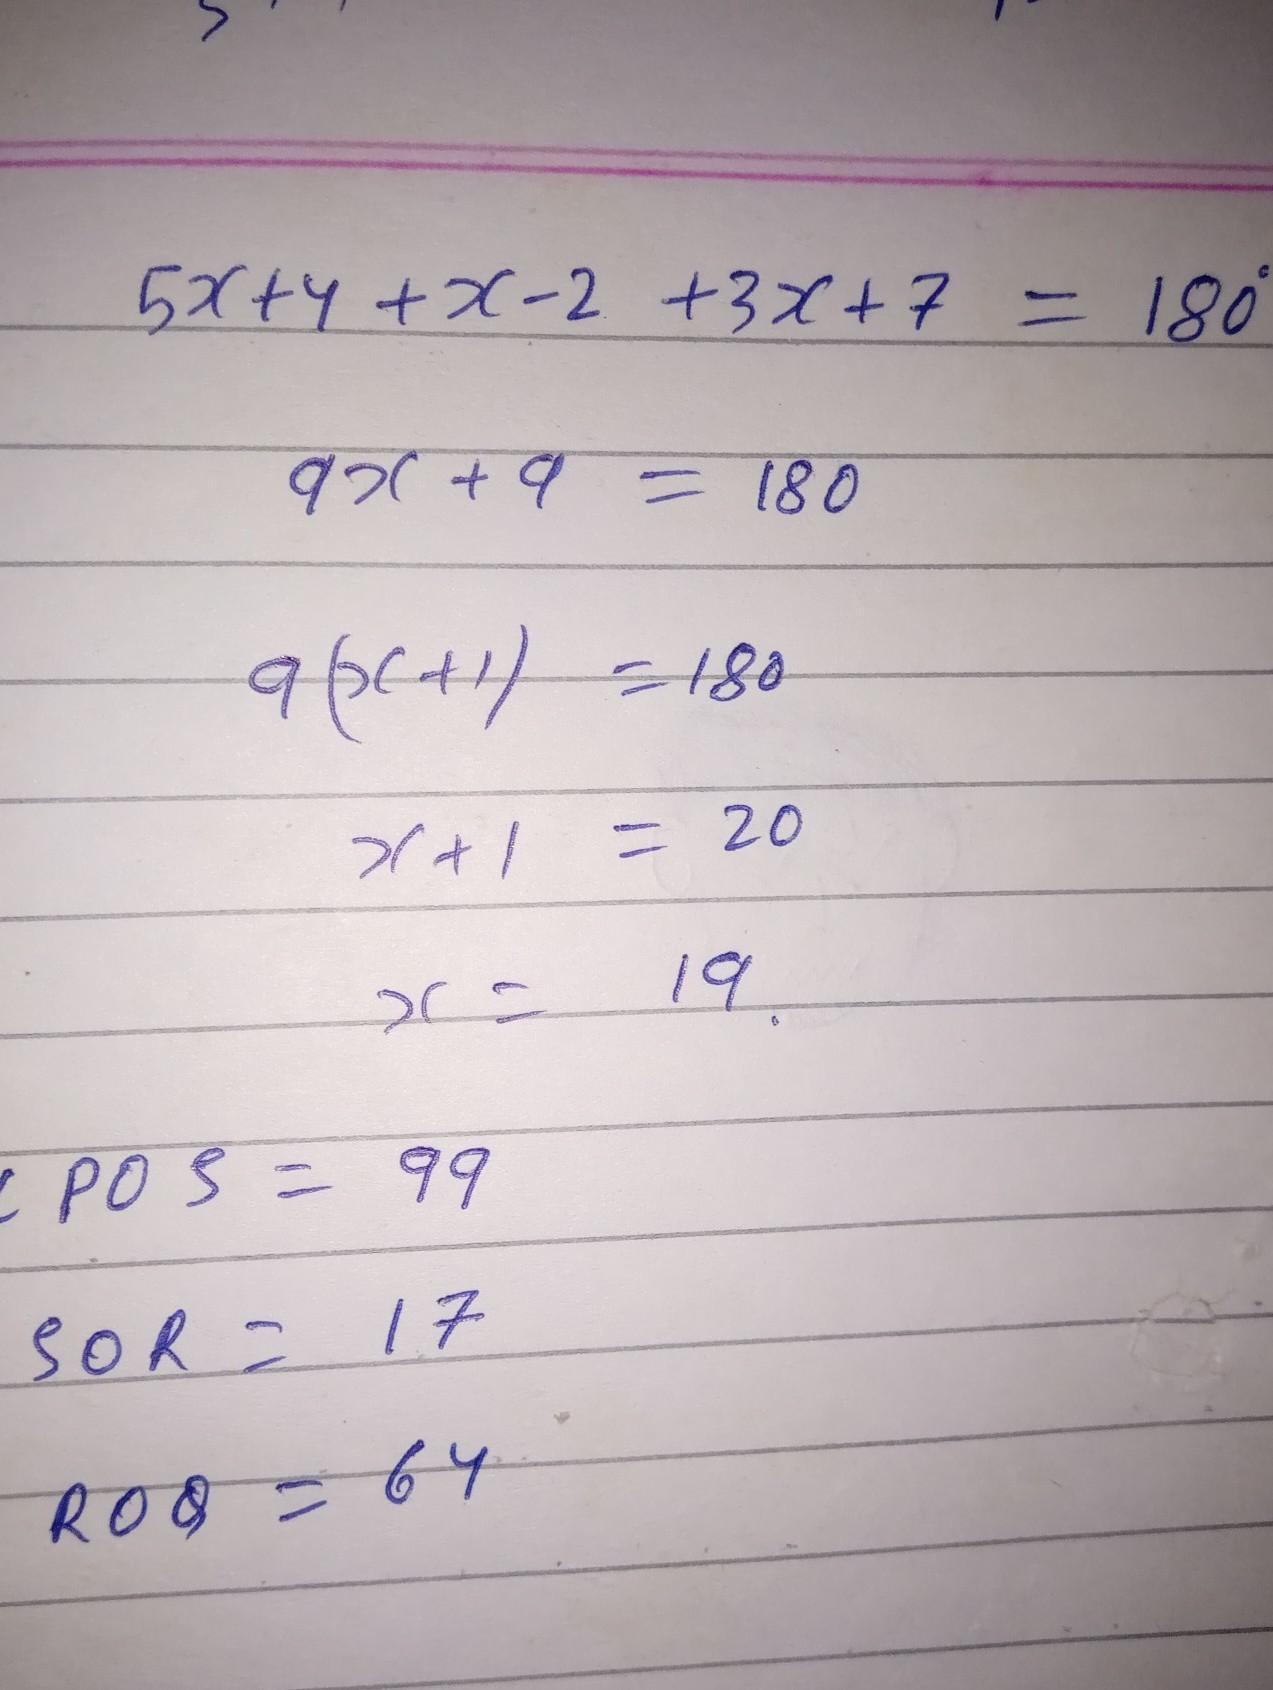 5x+4 +x-2 +3x+7 = 180°
9x + 9 = 180
9(x+1) = 180
x+1 = 20
x = 19.
POS = 99
SOR = 17
ROQ = 64